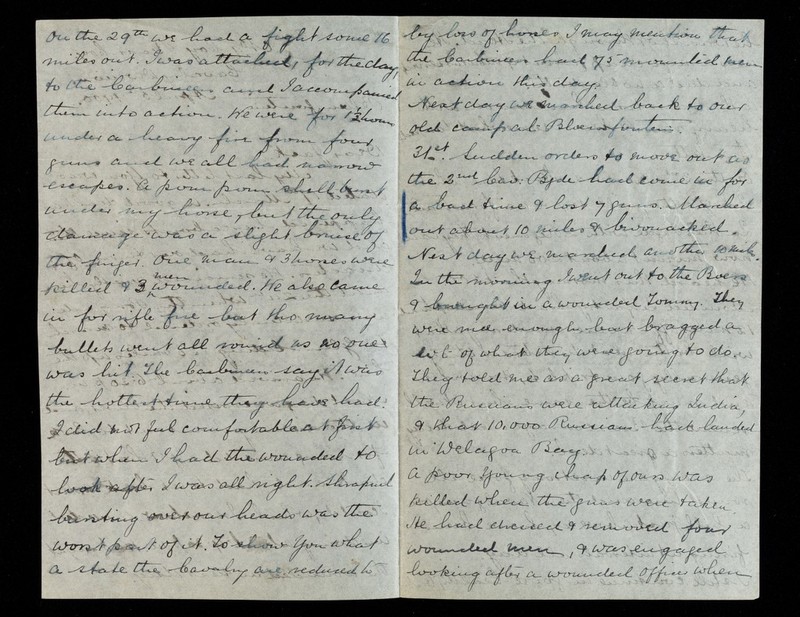 On the 29th we had a fight some 16
miles out. I was attached, for the day,
to the Carbineers and I accompanied
them into action. We were for 1½ hours
under a heavy fire from four
guns and we all had narrow
escapes. A pom pom shell burst
under my horse, but the only
damage was a slight bruise of
the finger. One man & 3 horses were
killed & 3 men wounded. We also came
in for rifle fire but tho many
bullets went all round us no one
was hit. The Carbineers say it was
the hottest time they have had.
I did not feel comfortable at first
but when I had the wounded to
look after I was all right. Shrapnel
bursting over our heads was the
worst part of it. To show you what
a state the Cavalry are reduced to
by loss of horses I may mention that
the Carbineers had 75 mounted men
in action this day.
Next day we marched back to our
old camp at Bloemfontein.
31st. Sudden orders to move out as
the 2nd Cav: Bgde had come in for
a bad time & lost 7 guns. Marched
out about 10 miles & bivouacked.
Next day we marched another 10 miles.
In the morning I went out to the Boers
& brought in a wounded Tommy. They
were nice enough, but bragged a
lot of what they were going to do.
They told me as a great secret that
the Russians were attacking India,
& that 10,000 Russians had landed
in Delagoa Bay.
A poor young chap of ours was
killed when the guns were taken.
He had dressed & removed four
wounded men, & was engaged
looking after a wounded officer when